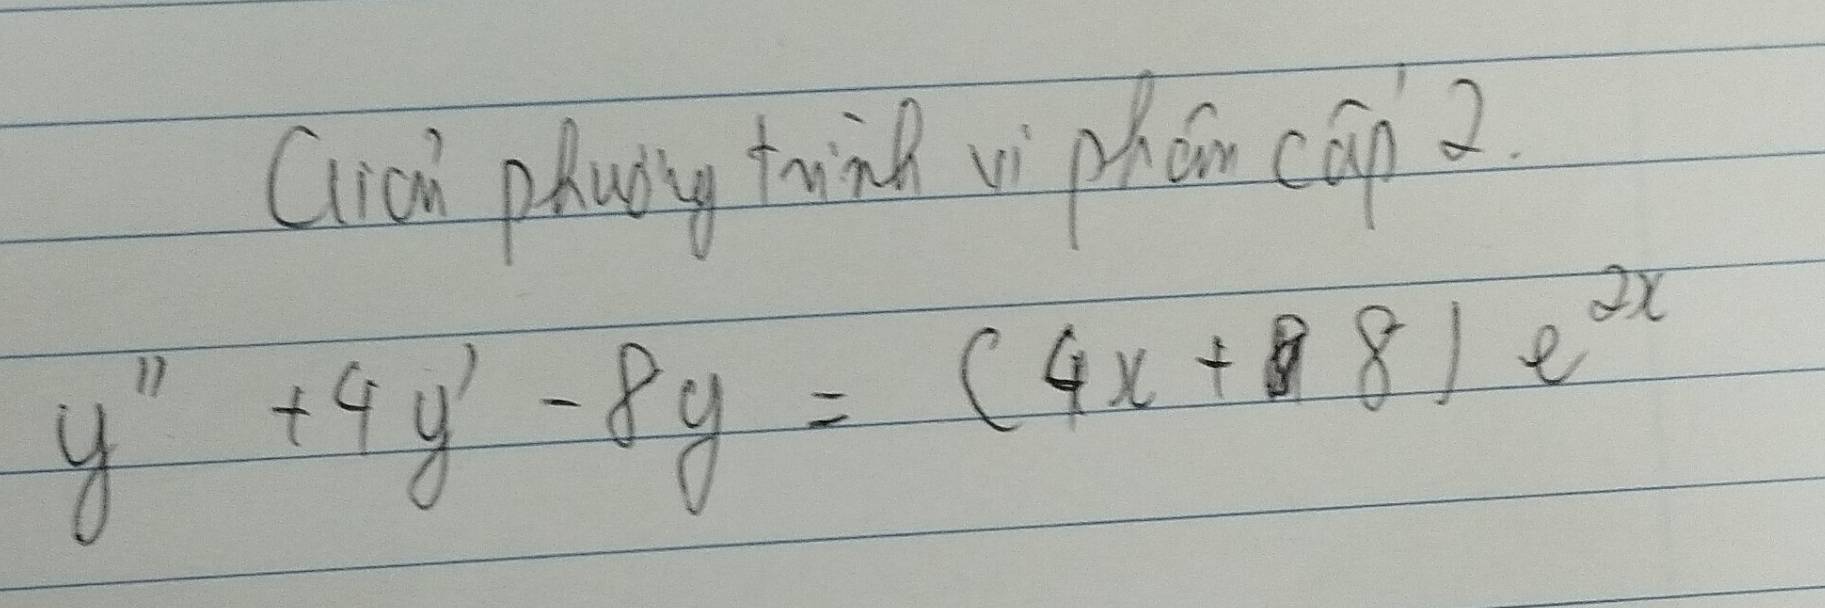 Giải phương trình vi phân cấp 2.
y'' + 4y' - 8y = (4x + 8) e^{2x}